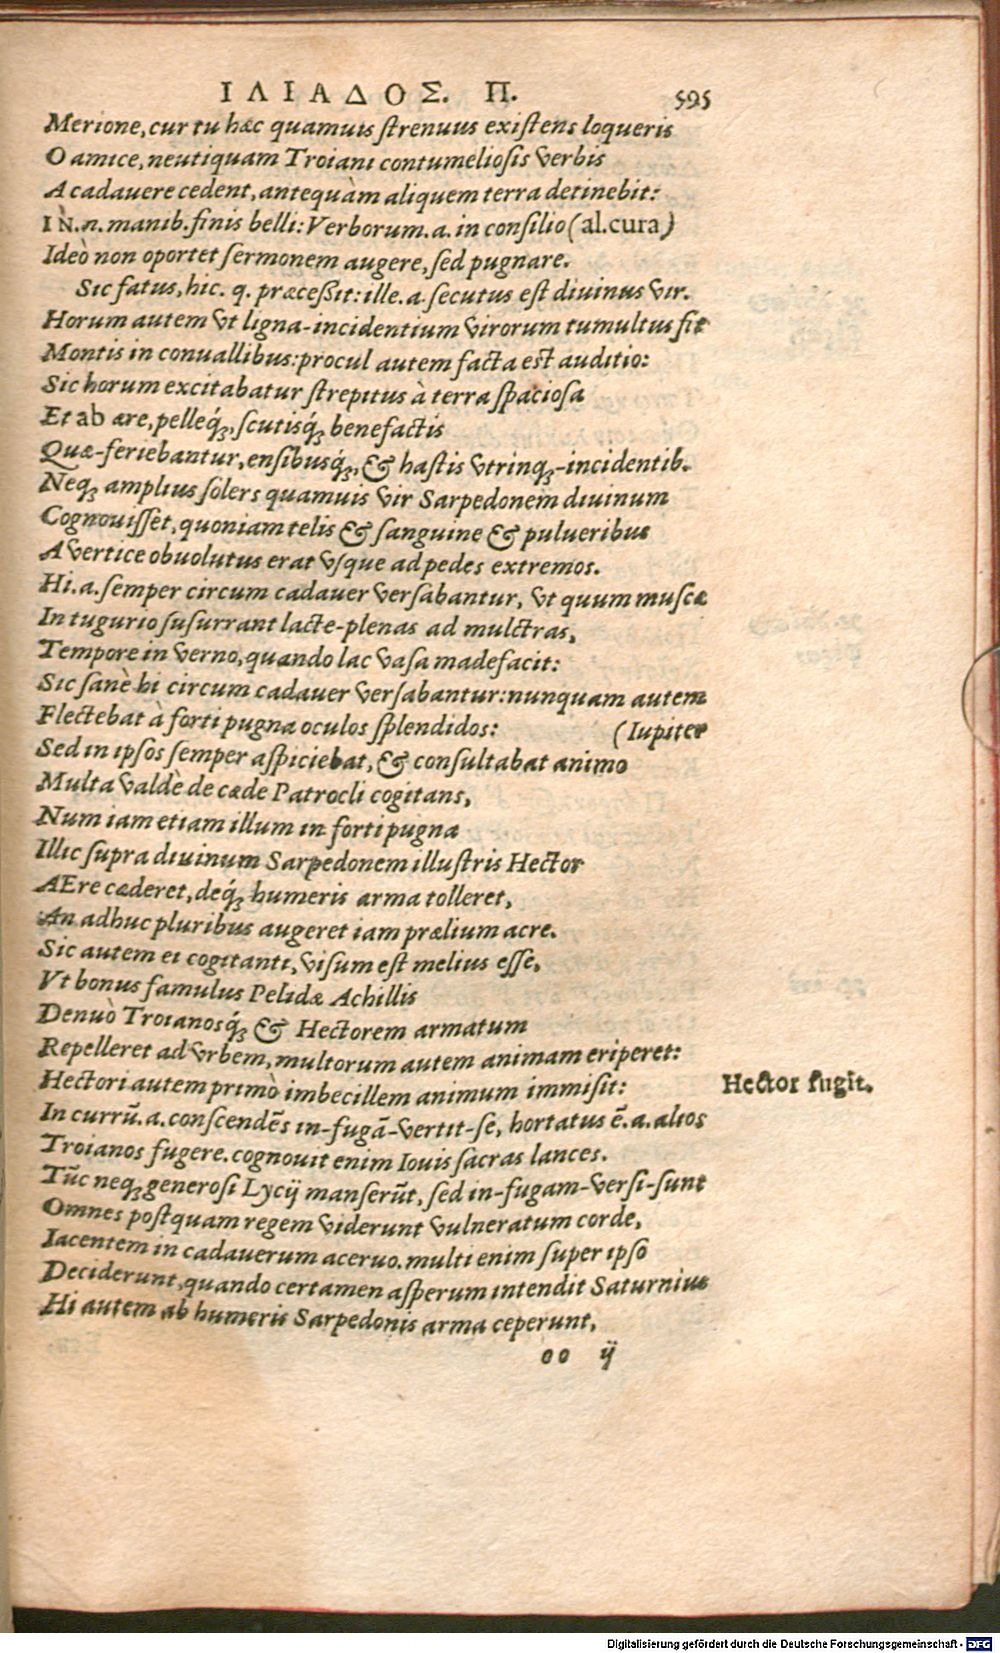 ΙΛΙΑΔΟΣ. Π. 595
Merione, cur tu hæc quamuis ſtrenuus exiſtens loqueris
O amice, neutiquam Troiani contumelioſis verbis
A cadauere cedent, antequàm aliquem terra detinebit:
IN. n. manib. finis belli: Verborum. a. in conſilio (al. cura)
Ideò non oportet ſermonem augere, ſed pugnare.
Sic fatus, hic. q. præceßit: ille. a. ſecutus eſt diuinus vir.
Horum autem vt ligna-incidentium virorum tumultus fit
Montis in conuallibus: procul autem facta est auditio:
Sic horum excitabatur ſtrepitus à terra ſpacioſa
Et ab ære, pelleq́ꝫ, ſcutisq́ꝫ benefactis
Quæ-feriebantur, enſibusq́ꝫ, & haſtis vtrinqꝫ-incidentib.
Neqꝫ amplius ſolers quamuis vir Sarpedonem diuinum
Cognouiſſet, quoniam telis & ſanguine & pulueribus
A vertice obuolutus erat vſque ad pedes extremos.
Hi. a. ſemper circum cadauer verſabantur, vt quum muſcæ
In tugurio ſuſurrant lacte-plenas ad mulctras,
Tempore in verno, quando lac vaſa madefacit:
Sic ſanè hi circum cadauer verſabantur: nunquam autem
Flectebat à forti pugna oculos ſplendidos: (Iupiter
Sed in ipſos ſemper aſpiciebat, & conſultabat animo
Multa valdè de cæde Patrocli cogitans,
Num iam etiam illum in forti pugna
Illic ſupra diuinum Sarpedonem illuſtris Hector
AEre cæderet, deq́ꝫ humeris arma tolleret,
An adhuc pluribus augeret iam prælium acre.
Sic autem ei cogitanti, viſum eſt melius eſſe,
Vt bonus famulus Pelidæ Achillis
Denuò Troianosq́ꝫ & Hectorem armatum
Repelleret ad vrbem, multorum autem animam eriperet:
Hectori autem primò imbecillem animum immiſit: Hector fugit.
In currũ. a. conſcendẽs in-fugã-vertit-ſe, hortatus ẽ. a. alios
Troianos fugere. cognouit enim Iouis ſacras lances.
Tũc neqꝫ generoſi Lycij manſerũt, ſed in-fugam-verſi-ſunt
Omnes poſtquam regem viderunt vulneratum corde,
Iacentem in cadauerum aceruo. multi enim ſuper ipſo
Deciderunt, quando certamen aſperum intendit Saturnius
Hi autem ab humeris Sarpedonis arma ceperunt,
oo ij
Digitalisierung gefördert durch die Deutsche Forschungsgemeinschaft - DFG